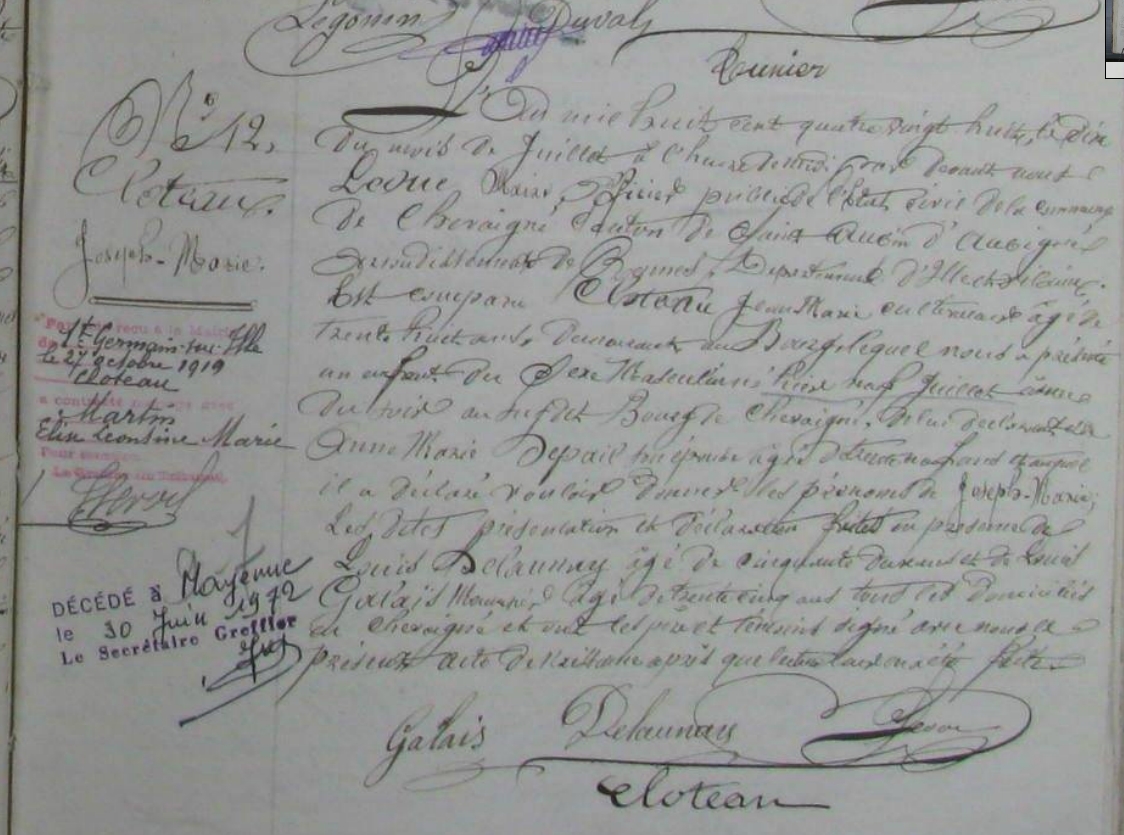 Legonin Duval
Crunier
N° 12.
Cloteau
Joseph-Marie.
reçu à la Mairie
de St Germain-sur-Ille
le 27 octobre 1919
Cloteau
a contracté mariage avec
Martin
Elise Léontine Marie
Pour mention
Le Greffier du Tribunal,
DÉCÉDÉ à Mayenne
le 30 Juin 1972
Le Secrétaire Greffier
L'An mil huit cent quatre vingt huit, le dix
du mois de Juillet à l'heure de midi par devant nous
Maire, Officier public de l'Etat civil de la commune
de Chevaigné Canton de Saint Aubin d'Aubigné
arrondissement de Rennes, Département d'Ille et Vilaine.
Est comparu Cloteau Jean Marie cultivateur âgé de
trente huit ans, demeurant au Bourg lequel nous a présenté
un enfant du Sexe Masculin né hier neuf Juillet à
du soir au Bourg de Chevaigné, de lui déclarant et de
Anne Marie Depail son épouse âgée de trente neuf ans et auquel
il a déclaré vouloir donner les prénoms de Joseph-Marie;
Les dites présentation et déclaration faites en présence de
Louis Delaunay âgé de cinquante deux ans et de Louis
Galais âgé de trente cinq ans tous les domiciliés
en Chevaigné et ont les père et témoins signé avec nous le
présent acte de naissance après que lecture leur en a été faite.
Galais Delaunay
Cloteau